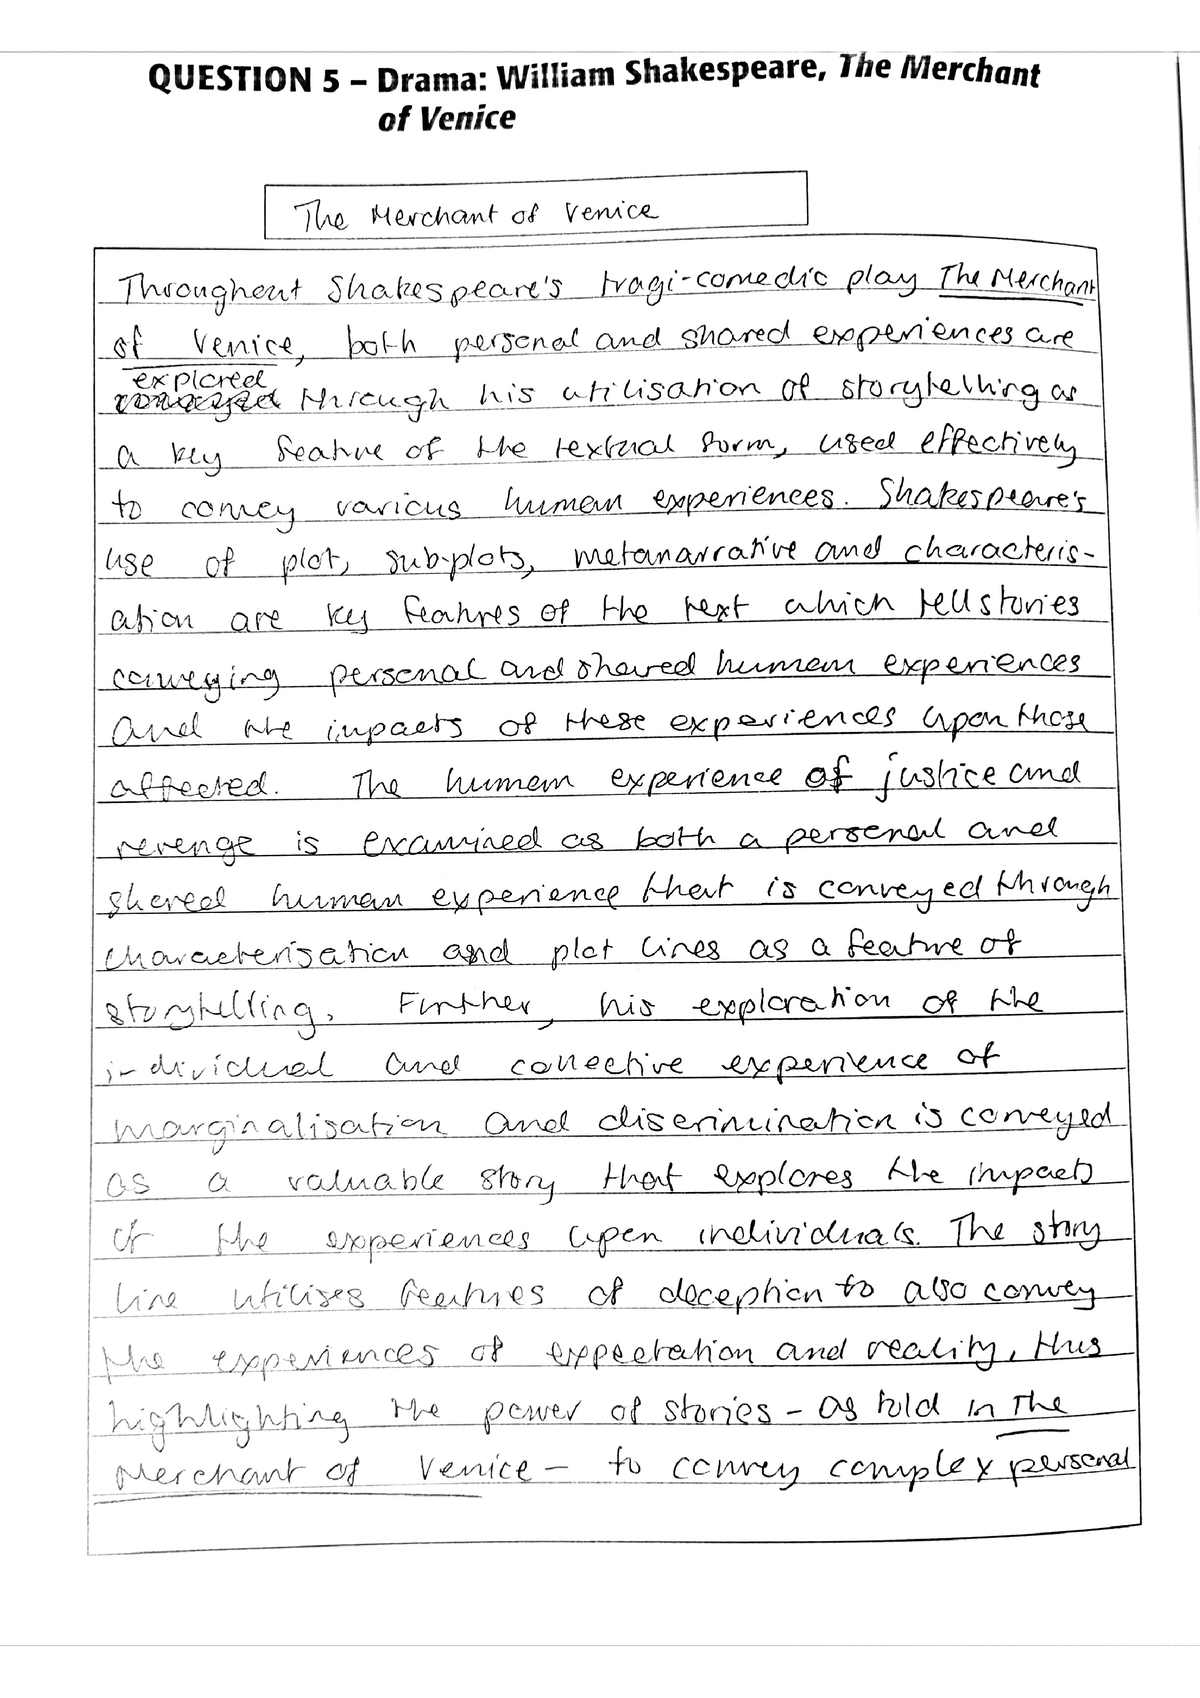 QUESTION 5 – Drama: William Shakespeare, The Merchant
of Venice
The Merchant of Venice
Throughout Shakespeare's tragi-comedic play The Merchant
of Venice, both personal and shared experiences are
explored
conveyed through his utilisation of storytelling as
a key feature of the textual form, used effectively
to convey various human experiences. Shakespeare's
use of plot, sub-plots, metanarrative and characteris-
ation are key features of the text which tell stories
conveying personal and shared human experiences
and the impacts of these experiences upon those
affected. The human experience of justice and
revenge is examined as both a personal and
shared human experience that is conveyed through
characterisation and plot lines as a feature of
storytelling. Further, his exploration of the
individual and collective experience of
marginalisation and discrimination is conveyed
as a valuable story that explores the impacts
of the experiences upon individuals. The story
line utilises features of deception to also convey
the experiences of expectation and reality, thus
highlighting the power of stories – as told in The
Merchant of Venice – to convey complex personal